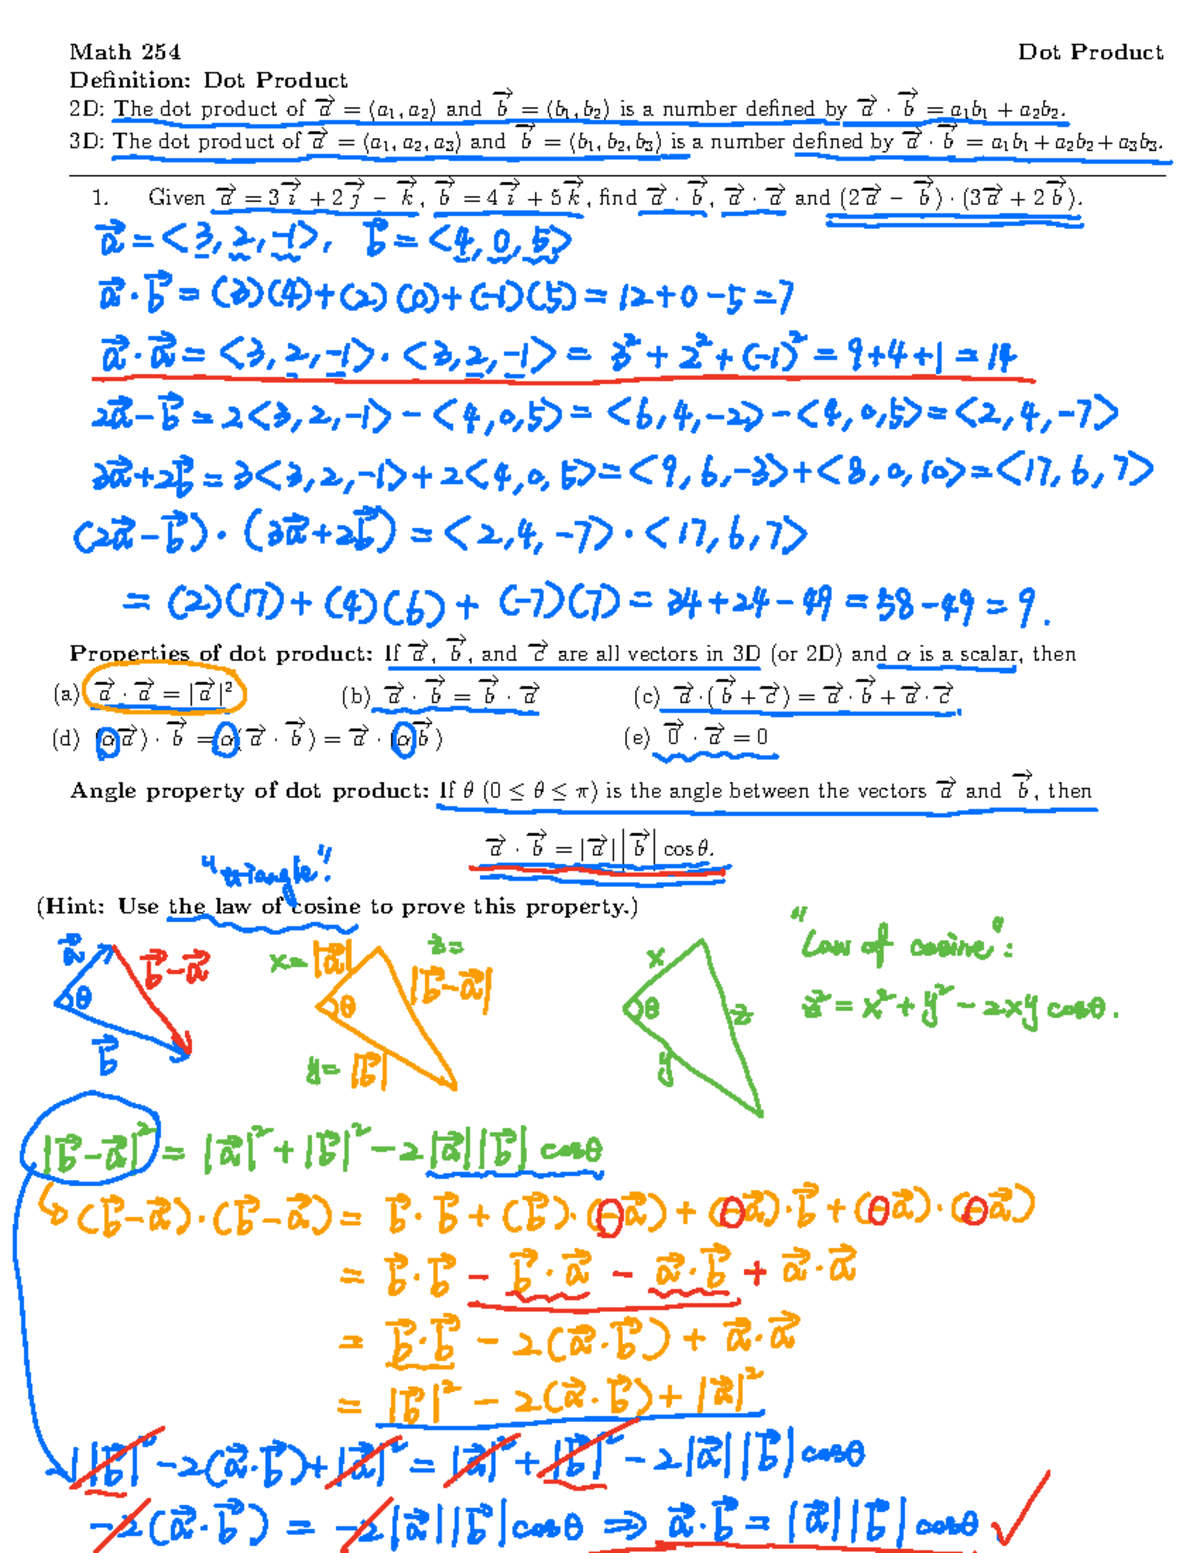 Math 254 Dot Product
Definition: Dot Product
2D: The dot product of a⃗ = ⟨a₁, a₂⟩ and b⃗ = ⟨b₁, b₂⟩ is a number defined by a⃗ · b⃗ = a₁b₁ + a₂b₂.
3D: The dot product of a⃗ = ⟨a₁, a₂, a₃⟩ and b⃗ = ⟨b₁, b₂, b₃⟩ is a number defined by a⃗ · b⃗ = a₁b₁ + a₂b₂ + a₃b₃.
1. Given a⃗ = 3i⃗ + 2j⃗ − k⃗, b⃗ = 4i⃗ + 5k⃗, find a⃗ · b⃗, a⃗ · a⃗ and (2a⃗ − b⃗) · (3a⃗ + 2b⃗).
a⃗ = <3, 2, -1>, b⃗ = <4, 0, 5>
a⃗ · b⃗ = (3)(4) + (2)(0) + (-1)(5) = 12 + 0 - 5 = 7
a⃗ · a⃗ = <3, 2, -1> · <3, 2, -1> = 3² + 2² + (-1)² = 9 + 4 + 1 = 14
2a⃗ - b⃗ = 2<3, 2, -1> - <4, 0, 5> = <6, 4, -2> - <4, 0, 5> = <2, 4, -7>
3a⃗ + 2b⃗ = 3<3, 2, -1> + 2<4, 0, 5> = <9, 6, -3> + <8, 0, 10> = <17, 6, 7>
(2a⃗ - b⃗) · (3a⃗ + 2b⃗) = <2, 4, -7> · <17, 6, 7>
= (2)(17) + (4)(6) + (-7)(7) = 34 + 24 - 49 = 58 - 49 = 9.
Properties of dot product: If a⃗, b⃗, and c⃗ are all vectors in 3D (or 2D) and α is a scalar, then
(a) a⃗ · a⃗ = |a⃗|² (b) a⃗ · b⃗ = b⃗ · a⃗ (c) a⃗ · (b⃗ + c⃗) = a⃗ · b⃗ + a⃗ · c⃗
(d) (αa⃗) · b⃗ = α(a⃗ · b⃗) = a⃗ · (αb⃗) (e) 0⃗ · a⃗ = 0
Angle property of dot product: If θ (0 ≤ θ ≤ π) is the angle between the vectors a⃗ and b⃗, then
a⃗ · b⃗ = |a⃗||b⃗| cos θ.
"triangle".
(Hint: Use the law of cosine to prove this property.)
a⃗ b⃗-a⃗ θ b⃗
x= |a⃗| z= |b⃗-a⃗| θ y= |b⃗|
x θ z y
"Law of cosine":
z² = x² + y² - 2xy cosθ.
|b⃗-a⃗|² = |a⃗|² + |b⃗|² - 2|a⃗||b⃗| cosθ
(b⃗-a⃗) · (b⃗-a⃗) = b⃗ · b⃗ + (b⃗) · (-a⃗) + (-a⃗) · b⃗ + (-a⃗) · (-a⃗)
= b⃗ · b⃗ - b⃗ · a⃗ - a⃗ · b⃗ + a⃗ · a⃗
= b⃗ · b⃗ - 2(a⃗ · b⃗) + a⃗ · a⃗
= |b⃗|² - 2(a⃗ · b⃗) + |a⃗|²
|b⃗|² - 2(a⃗ · b⃗) + |a⃗|² = |a⃗|² + |b⃗|² - 2|a⃗||b⃗| cosθ
-2(a⃗ · b⃗) = -2|a⃗||b⃗| cosθ ⇒ a⃗ · b⃗ = |a⃗||b⃗| cosθ ✓